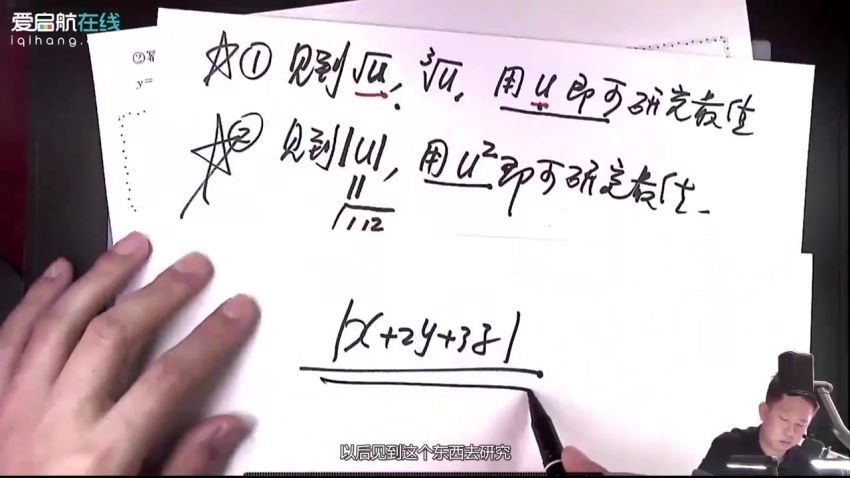 爱启航在线
iqihang.com
②幂
y=
① 见到√u, ∛u, 用 u 即可研究最值
② 见到|u|, 用 u² 即可研究最值.
||
√u²
|x+2y+3z|
以后见到这个东西去研究